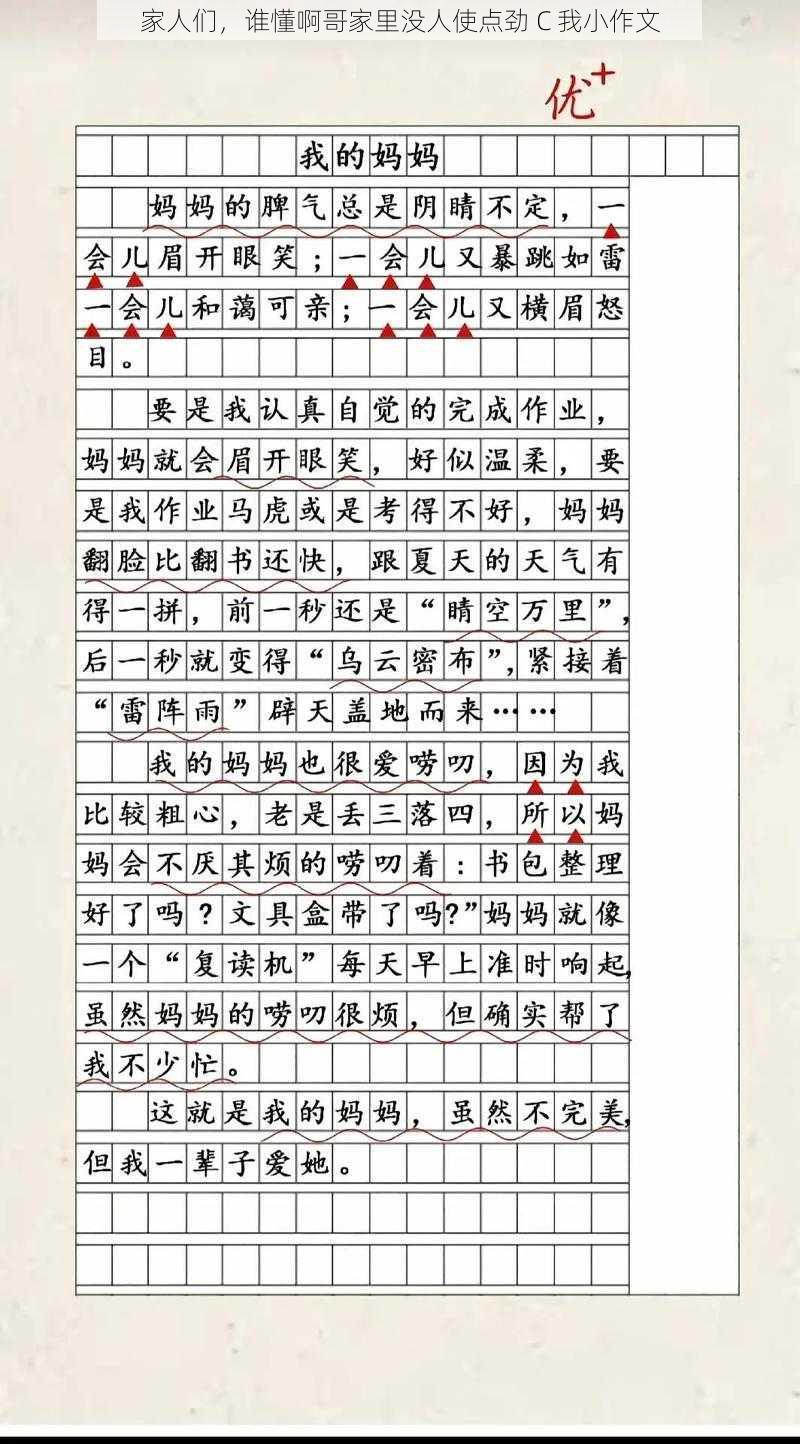 家人们，谁懂啊哥家里没人使点劲 C 我小作文
优+
我的妈妈
妈妈的脾气总是阴晴不定，一
会儿眉开眼笑；一会儿又暴跳如雷
一会儿和蔼可亲；一会儿又横眉怒
目。
要是我认真自觉的完成作业，
妈妈就会眉开眼笑，好似温柔，要
是我作业马虎或是考得不好，妈妈
翻脸比翻书还快，跟夏天的天气有
得一拼，前一秒还是“晴空万里”，
后一秒就变得“乌云密布”，紧接着
“雷阵雨”辟天盖地而来……
我的妈妈也很爱唠叨，因为我
比较粗心，老是丢三落四，所以妈
妈会不厌其烦的唠叨着：书包整理
好了吗？文具盒带了吗？”妈妈就像
一个“复读机”每天早上准时响起，
虽然妈妈的唠叨很烦，但确实帮了
我不少忙。
这就是我的妈妈，虽然不完美，
但我一辈子爱她。